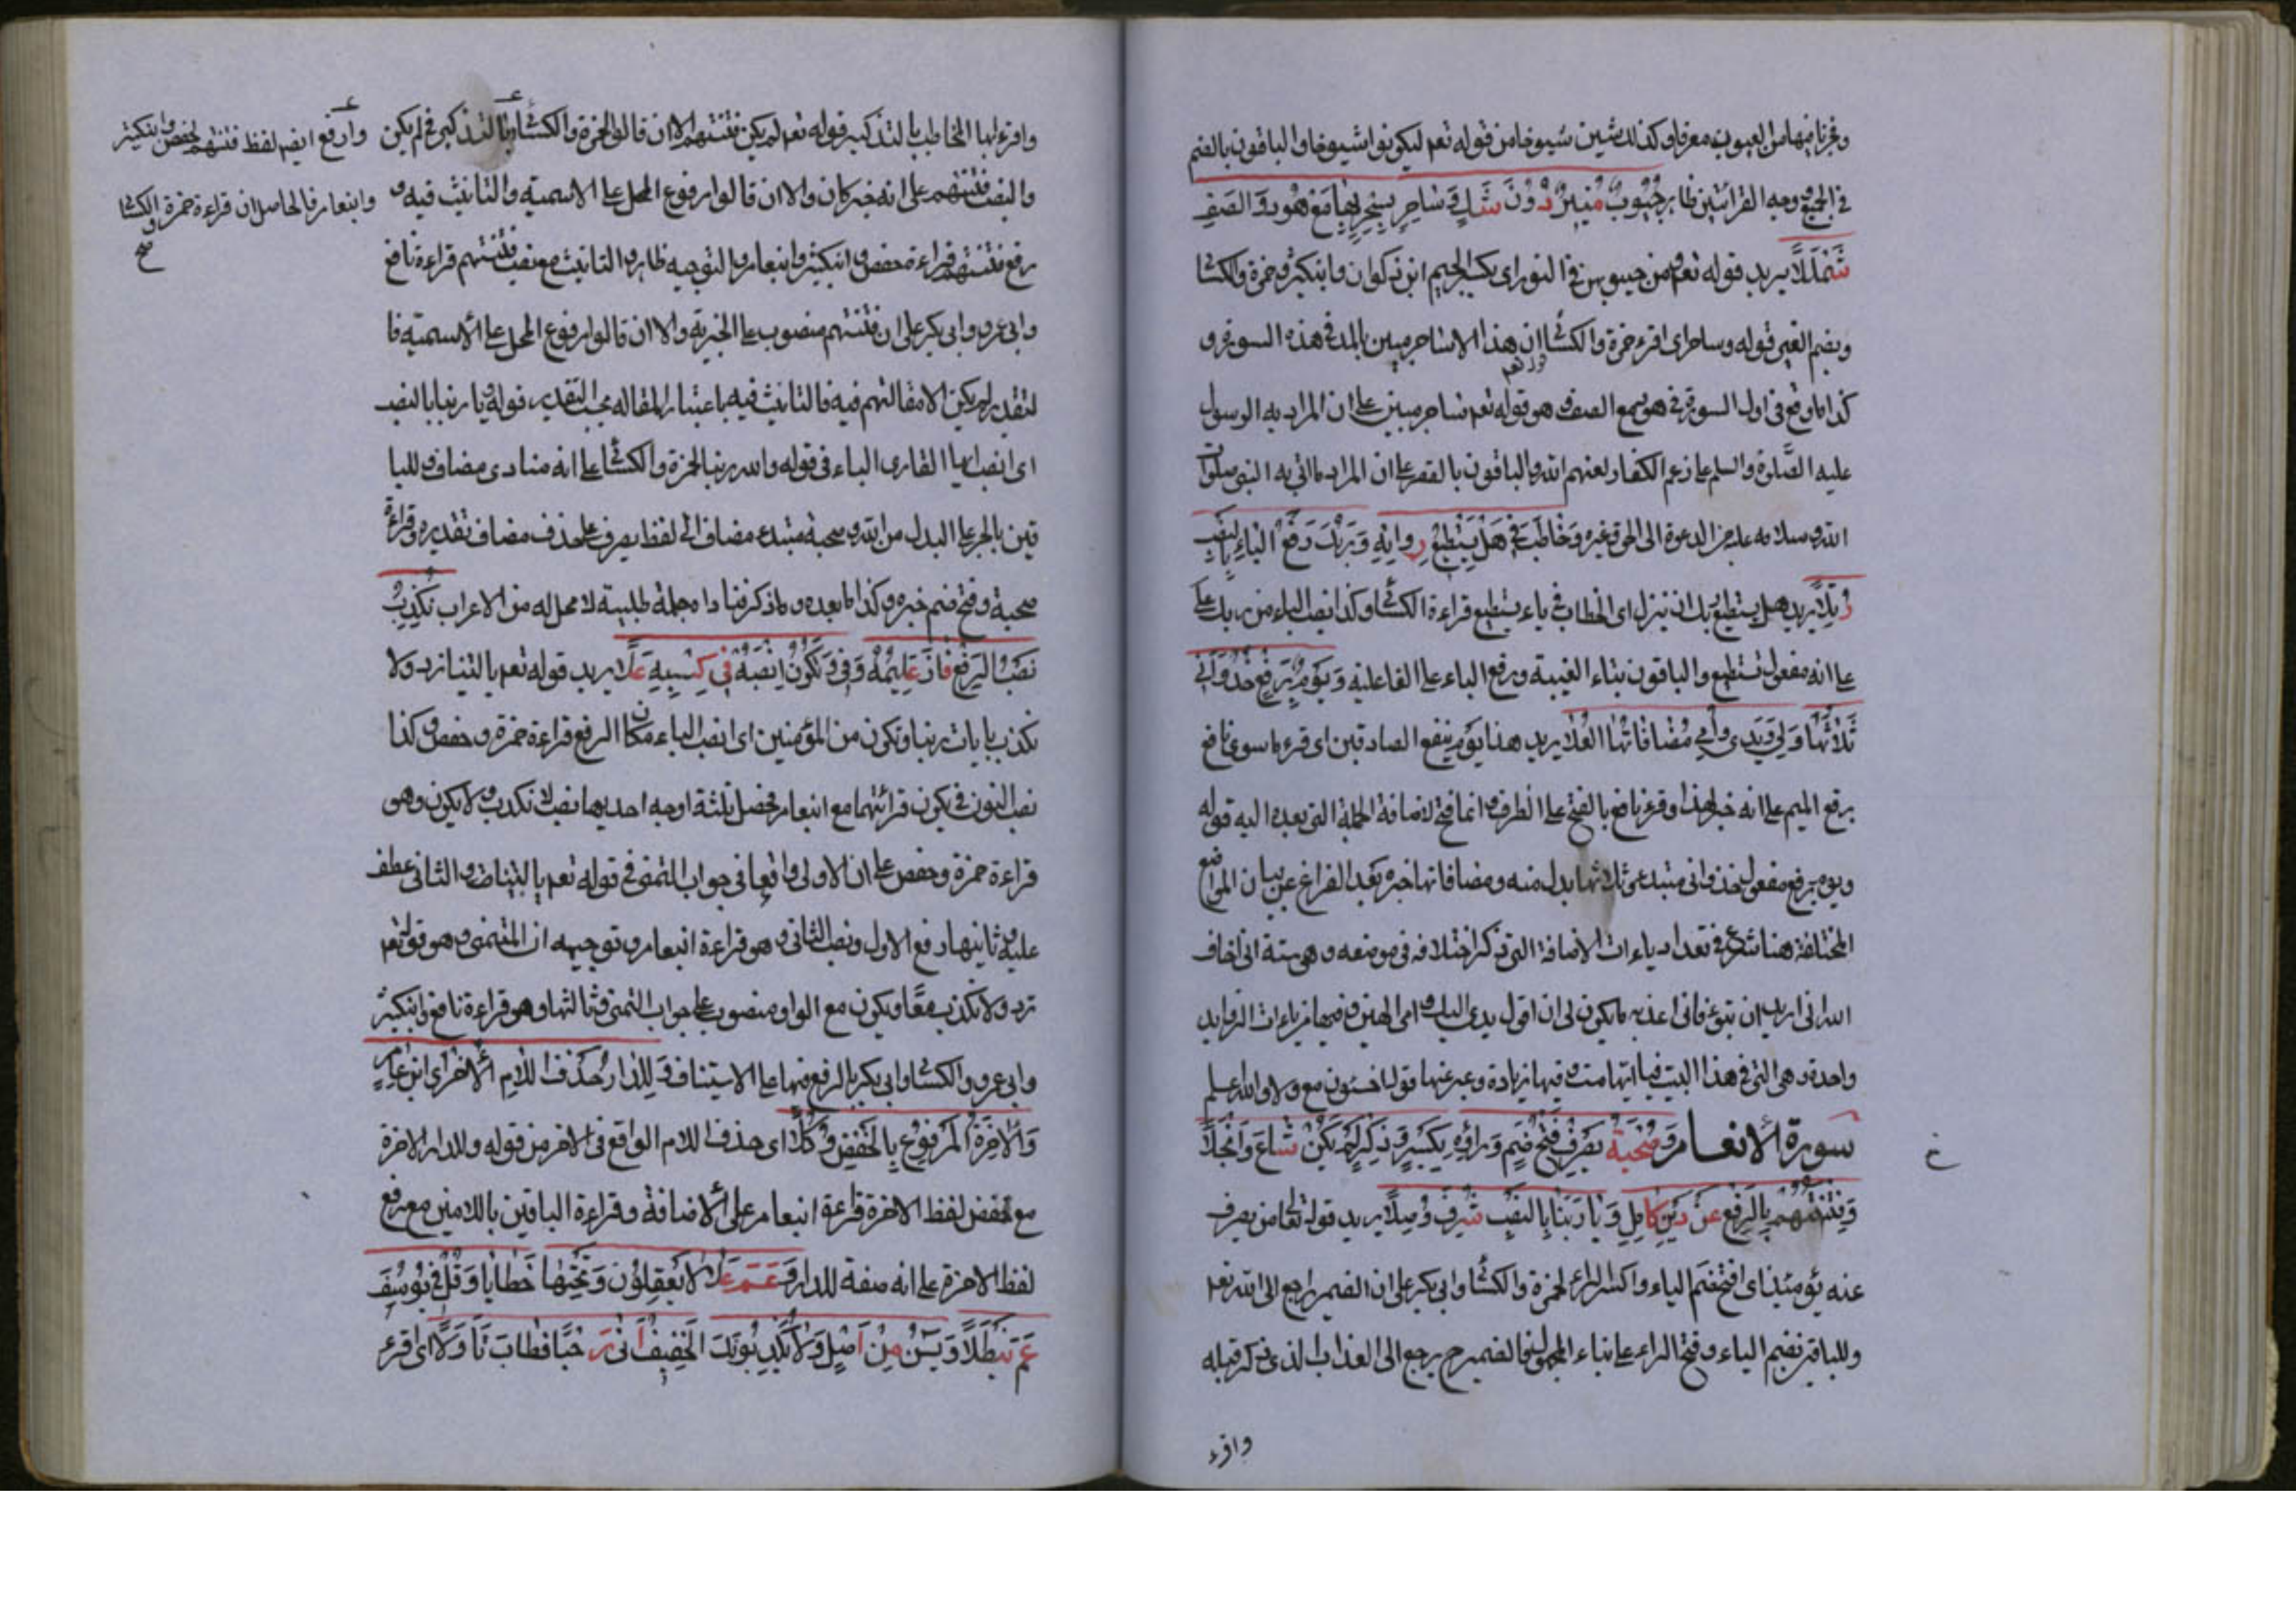 وغيرنا فيها من العيوب معرفا وكذلك شين شيوخا من قوله تعم ليكونوا شيوخا والباقون بالضم
في الجميع وجه القرائتين ظاهر جُيُوبِ مُنِيرٌ دُونَ شَكٍّ وَسَاحِرٌ بِسِحْرٍ بِهَا مَعْ هُودَ وَالصَّفِّ
شَمْلَلَا يريد قوله تعم من جيوبهن في النور اي بكسر الجيم ابن ذكوان وابن كثير وحمزة والكسا
وبضم الغير قوله وساحر اي اقرء حمزة والكسا ان هذا الا ساحر مبين بالمد في هذه السورة و
كذا ما وقع في اول السورة في هود مع الصف وهو قوله تعم ساحر مبين على ان المراد به الرسول
عليه الصلوة والسلم على زعم الكفار لعنهم الله والباقون بالقصر على ان المراد ما اتى به النبي صلوات
الله وسلامه عليه من الدعوة الى الحق وغيره وَخَاطَبَ فِي هَلْ يَسْتَطِيعُ رُوَاتُهُ وَرَبُّكَ رَفْعُ الْبَاءِ بِالنَّصْبِ
رُتِّلَا يريد هل يستطيع ربك ان ينزل اي الخطاب في ياء يستطيع قراءة الكسا وكذا نصب الباء من ربك على
على انه مفعول تستطيع والباقون بياء الغيبة ورفع الباء على الفاعلية وَيَوْمَ بِرَفْعٍ خُذْ وَإِنِّي
ثَلَاثُهَا وَلِي وَيَدِي وَأُمِّي مُضَافَاتُهَا الْعُلَا يريد هذا يوم ينفع الصادقين اي قرء ما سوى نافع
برفع الميم على انه خبر لهذا وقرء نافع بالفتح على الظرف وانما فتح لاضافة الجملة التي بعده اليه قوله
ويوم برفع مفعول لخذ واني مبتدء وثلاثها بدل منه ومضافاتها خبره بعد الفراغ عن بيان المواضع
المختلفة هنا شرع في تعداد ياءات الاضافة التي ذكر اختلافه في موضعه وهي ستة اني اخاف
الله اني اريد ان تبوء فاني اعذبه ما يكون لي ان اقول يدي اليك وامي الهين وفيها من ياءات الزوايد
واحدة وهي التي في هذا البيت فيا ايتها مت وفيها زيادة وعبر عنها قولا خشون مع ولا والله اعلم
سورة الانعام وَصُحْبَةُ يُصْرَفْ فَتْحُ ضَمٍّ وَرَاؤُهُ بِكَسْرٍ وَذَكِّرْ لَمْ يَكُنْ شَاعَ وَانْجَلَا
وَفِتْنَتُهُمْ بِالرَّفْعِ عَنْ دِينِ كَامِلٍ وَبَا رَبِّنَا بِالنَّصْبِ شَرَّفَ وُصَّلَا يريد قوله تعا من يصرف
عنه يومئذ اي افتح ضم الياء واكسر الراء لحمزة والكسا وابي بكر على ان الضمير راجع الى الله تعم
وللباقين ضم الياء وفتح الراء على بناء المجهول فالضمير ح يرجع الى العذاب الذي ذكر قبله
واقرء
واقرء ايها المخاطب بالتذكير قوله تعم لم يكن فتنتهم الا ان قالوا لحمزة والكسا وبا التذكير في لم يكن
والنصب فتنتهم على انه خبر كان والا ان قالوا مرفوع المحل على الاسمية والتانيث فيه و
رفع فتنتهم قراءة حفص وابن كثير وابن عامر والتوجيه ظاهر والتانيث مع نصب فتنتهم قراءة نافع
وابي عمرو وابي بكر على ان فتنتهم منصوب على الخبرية والا ان قالوا مرفوع المحل على الاسمية فا
لتقدير لم يكن الا مقالتهم فيه فالتانيث فيه باعتبار المقاله بحسب التقدير قوله با ربنا بالنصب
اي انصب ايها القارى الباء في قوله والله ربنا لحمزة والكسا على انه منادى مضاف وللبا
قين بالجر على البدل من الله وصحبة مبتدء مضاف الى لفظ يصرف على حذف مضاف تقديره وقراءة
صحبة وفتح ضم خبره وكذا ما بعده وذكر فنادا جملة طلبية لا محل له من الاعراب نُكَذِّبُ
نَصْبُ الرَّفْعِ فَازَ عَلِيمُهُ وَفِي وَنَكُونُ انْصِبْهُ فِي كَسْبِهِ عُلَا يريد قوله تعم يا ليتنا نرد ولا
نكذب بايات ربنا ونكون من المؤمنين اي انصب الباء مكان الرفع قراءة حمزة وحفص وكذا
نصب النون في يكون قرائتهما مع ابن عامر فحصل ثلثة اوجه احديها نصب لا نكذب ولا يكون وهو
قراءة حمزة وحفص على ان الاولى واقعا في جواب التمني في قوله تعم يا ليتنا والثاني عطف
عليه وثانيها رفع الاول ونصب الثاني وهو قراءة ابن عامر وتوجيهه ان المتمني وهو قوله تعم
نرد ولا نكذب معًا ويكون مع الواو منصوب على جواب التمني وثالثها وهو قراءة نافع وابن كثير
وابي عمرو والكسا وابي بكر بالرفع فيها على الاستيناف وَلَلدَّارُ حَذْفُ اللَّامِ الْأُخْرَى ابْنُ عَامِرٍ
وَالْآخِرَةُ الْمَرْفُوعُ بِالْخَفْضِ وُكِّلَا اي حذف اللام الواقع في الاخر من قوله وللدار الاخرة
مع خفض لفظ الاخرة قراءة ابن عامر على الاضافة وقراءة الباقين باللامين مع رفع
لفظ الاخرة على انه صفة للدار وَعَمَّ عُلًا لَا يَعْقِلُونَ وَتَحْتَهَا خِطَابًا وَقُلْ فِي يُوسُفَ
عَمَّ نَيْطَلَا وَيٰسٓ مِنْ أَصْلٍ وَلَا يُكْذِبُونَكَ الْخَفِيفُ أَتَى رَحْبًا وَطَابَ تَأَوُّلَا اي قرء
وارفع ايضا لفظ فتنتهم لحفص وابن كثير
وابن عامر فالحاصل ان قراءة حمزة والكسا
صح